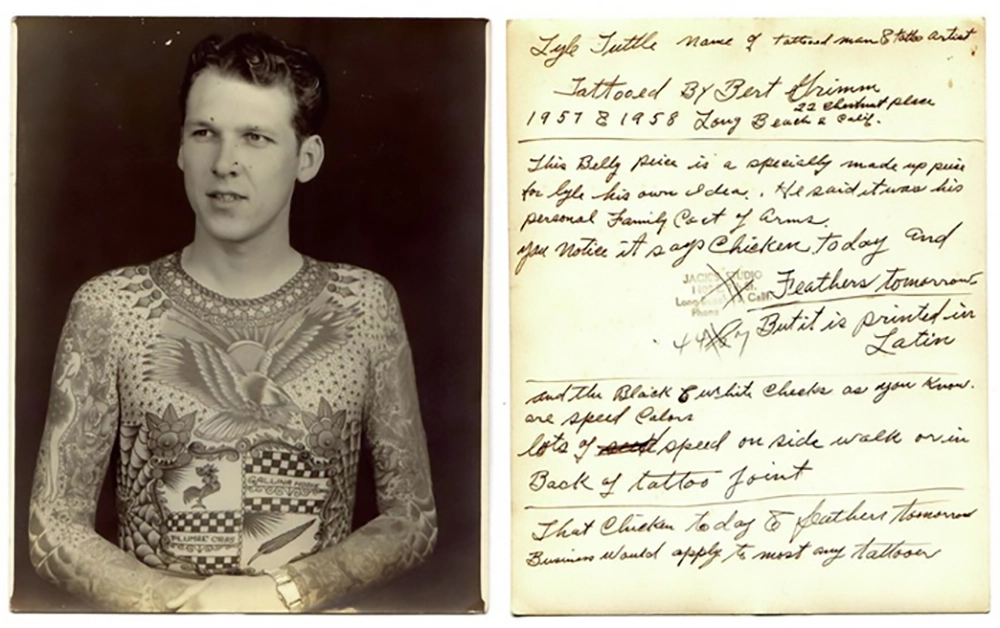 GALLINA HODIE
PLUMAE CRAS
Lyle Tuttle name of tattooed man & tattoo artist
Tattooed By Bert Grimm
22 Chestnut place
1957 & 1958 Long Beach Calif.
This Belly peice is a specially made up peice
for Lyle his own idea. He said it was his
personal Family Coat of Arms.
you Notice it says Chicken today and
JACK'S STUDIO
Long Calif.
Phone
Feathers tomorrow
But it is printed in
Latin
and the Black & white checks as you know.
are speed Colors
lots of speed on side walk or in
Back of tattoo Joint
That Chicken today & feathers tomorrow
Business would apply to most any tattooer